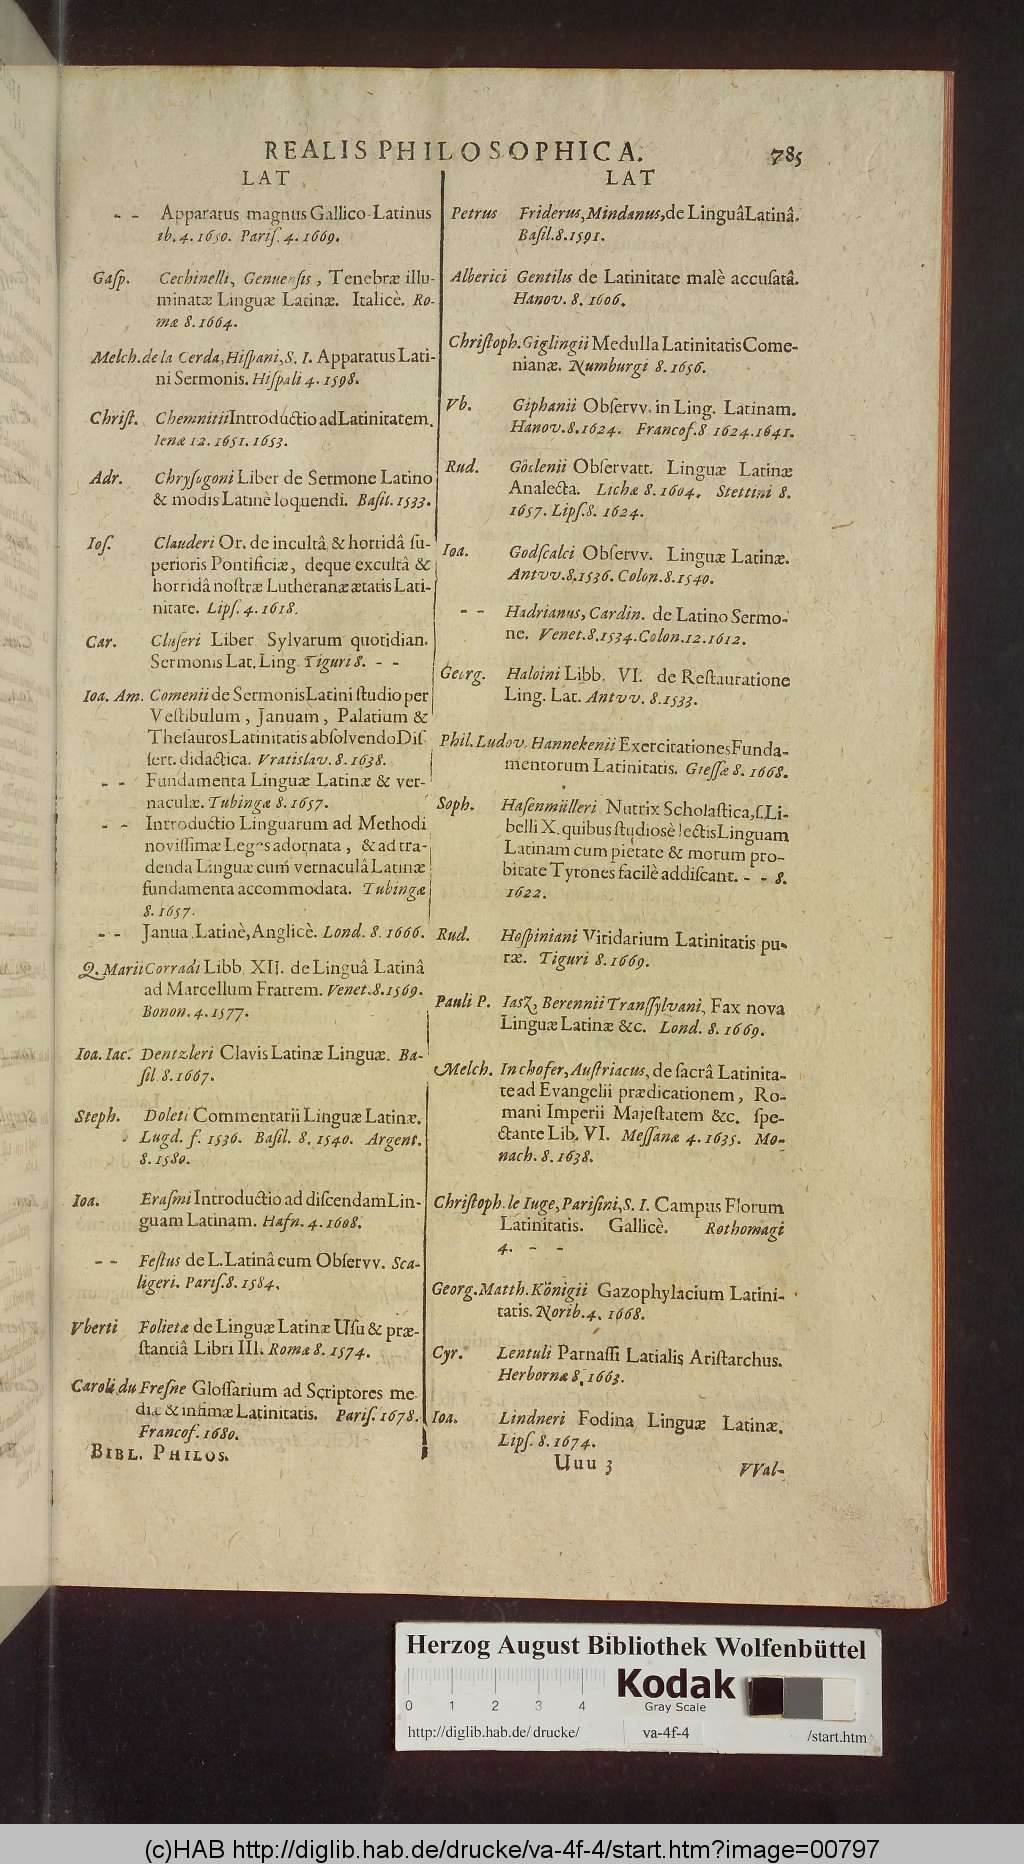 REALIS PHILOSOPHICA. 785
LAT
- - Apparatus magnus Gallico-Latinus
ib. 4. 1650. Pariſ. 4. 1669.
Gaſp. Cechinelli, Genuenſis, Tenebræ illu-
minatæ Linguæ Latinæ. Italicè. Ro-
mæ 8. 1664.
Melch. de la Cerda, Hiſpani, S. I. Apparatus Lati-
ni Sermonis. Hiſpali 4. 1598.
Chriſt. Chemnitii Introductio ad Latinitatem.
Ienæ 12. 1651. 1653.
Adr. Chryſogoni Liber de Sermone Latino
& modis Latinè loquendi. Baſil. 1533.
Ioſ. Clauderi Or. de incultâ & horridâ ſu-
perioris Pontificiæ, deque excultâ &
horridâ noſtræ Lutheranæ ætatis Lati-
nitate. Lipſ. 4. 1618.
Car. Cluſeri Liber Sylvarum quotidian.
Sermonis Lat. Ling. Tiguri 8. - -
Ioa. Am. Comenii de Sermonis Latini ſtudio per
Veſtibulum, Januam, Palatium &
Theſauros Latinitatis abſolvendo Diſ-
ſert. didactica. Vratislav. 8. 1638.
- - Fundamenta Linguæ Latinæ & ver-
naculæ. Tubingæ 8. 1657.
- - Introductio Linguarum ad Methodi
noviſſimæ Leges adornata, & ad tra-
denda Linguæ cum vernaculâ Latinæ
fundamenta accommodata. Tubingæ
8. 1657.
- - Janua Latinè, Anglicè. Lond. 8. 1666.
Q. Marii Corradi Libb. XII. de Linguâ Latinâ
ad Marcellum Fratrem. Venet. 8. 1569.
Bonon. 4. 1577.
Ioa. Iac. Dentzleri Clavis Latinæ Linguæ. Ba-
ſil. 8. 1667.
Steph. Doleti Commentarii Linguæ Latinæ.
Lugd. f. 1536. Baſil. 8. 1540. Argent.
8. 1580.
Ioa. Eraſmi Introductio ad diſcendam Lin-
guam Latinam. Hafn. 4. 1608.
- - Feſtus de L. Latinâ cum Obſervv. Sca-
ligeri. Pariſ. 8. 1584.
Vberti Folietæ de Linguæ Latinæ Uſu & præ-
ſtantiâ Libri III. Romæ 8. 1574.
Caroli du Freſne Gloſſarium ad Scriptores me-
diæ & infimæ Latinitatis. Pariſ. 1678.
Francof. 1680.
BIBL. PHILOS.
LAT
Petrus Friderus, Mindanus, de Linguâ Latinâ.
Baſil. 8. 1591.
Alberici Gentilis de Latinitate malè accuſatâ.
Hanov. 8. 1606.
Chriſtoph. Giglingii Medulla Latinitatis Come-
nianæ. Numburgi 8. 1656.
Vb. Giphanii Obſervv. in Ling. Latinam.
Hanov. 8. 1624. Francof. 8 1624. 1641.
Rud. Goclenii Obſervatt. Linguæ Latinæ
Analecta. Lichæ 8. 1604. Stettini 8.
1657. Lipſ. 8. 1624.
Ioa. Godſcalci Obſervv. Linguæ Latinæ.
Antvv. 8. 1536. Colon. 8. 1540.
- - Hadrianus, Cardin. de Latino Sermo-
ne. Venet. 8. 1534. Colon. 12. 1612.
Georg. Haloini Libb. VI. de Reſtauratione
Ling. Lat. Antvv. 8. 1533.
Phil. Ludov. Hannekenii Exercitationes Funda-
mentorum Latinitatis. Gieſſæ 8. 1668.
Soph. Haſenmülleri Nutrix Scholaſtica, ſ. Li-
belli X. quibus ſtudiosè lectis Linguam
Latinam cum pietate & morum pro-
bitate Tyrones facilè addiſcant. - - 8.
1622.
Rud. Hoſpiniani Viridarium Latinitatis pu-
ræ. Tiguri 8. 1669.
Pauli P. Iasz, Berennii Tranſſylvani, Fax nova
Linguæ Latinæ &c. Lond. 8. 1669.
Melch. Inchofer, Auſtriacus, de ſacrâ Latinita-
te ad Evangelii prædicationem, Ro-
mani Imperii Majeſtatem &c. ſpe-
ctante Lib. VI. Meſſanæ 4. 1635. Mo-
nach. 8. 1638.
Chriſtoph. le Iuge, Pariſini, S. I. Campus Florum
Latinitatis. Gallicè. Rothomagi
4. - -
Georg. Matth. Königii Gazophylacium Latini-
tatis. Norib. 4. 1668.
Cyr. Lentuli Parnaſſi Latialis Ariſtarchus.
Herbornæ 8. 1663.
Ioa. Lindneri Fodina Linguæ Latinæ.
Lipſ. 8. 1674.
Uuu 3 VVal-
Herzog August Bibliothek Wolfenbüttel
Kodak
Gray Scale
0 1 2 3 4
http://diglib.hab.de/drucke/ va-4f-4 /start.htm
(c)HAB http://diglib.hab.de/drucke/va-4f-4/start.htm?image=00797